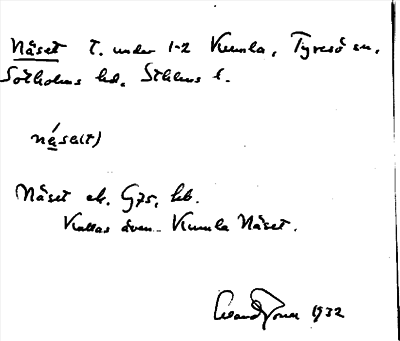 Näset T. under 1-2 Kumla, Tyresö sn,
Sotholms hd, Sthlms l.
näse(t)
Näset ek. G75, hb.
Kallas även Kumla Näset.
1932